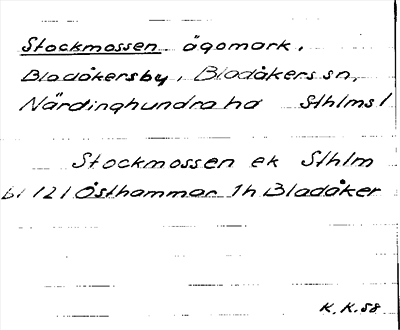 Stockmossen ägomark,
Bladåkersby, Bladåkers sn,
Närdinghundra hd Sthlms l
Stockmossen ek Sthlm
bl 121 Östhammar Th Bladåker
K. K. 58